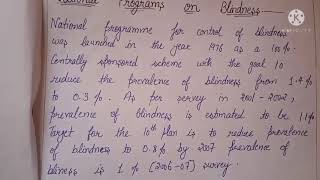 National Programs on Blindness
National programme for control of blindness
was launched in the year 1976 as a 100%
Centrally sponsored scheme with the goal to
reduce the prevalence of blindness from 1.4%
to 0.3%. As per survey in 2001-2002,
prevalence of blindness is estimated to be 1.1%
Target for the 10th plan is to reduce prevalence
of blindness to 0.8% by 2007 prevalence of
bliness is 1% (2006-07) survey.